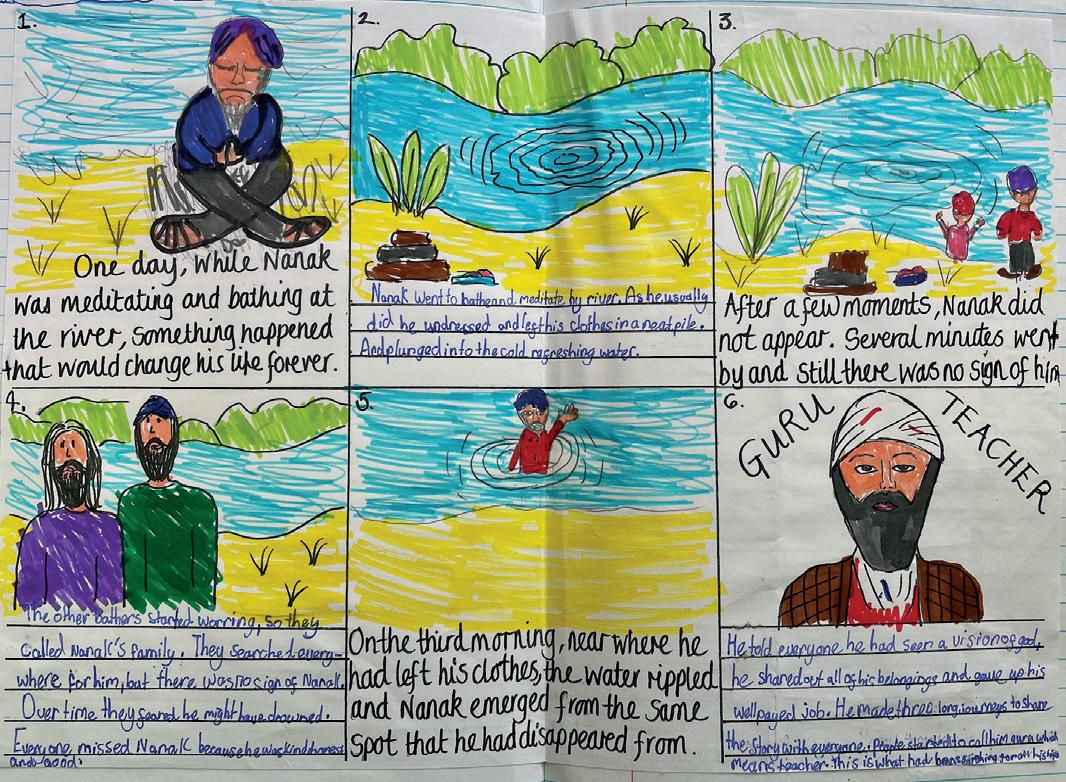 1.
One day, while Nanak
was meditating and bathing at
the river, something happened
that would change his life forever.
2.
Nanak went to bathe and meditate by river. As he usually
did he undressed and left his clothes in a neat pile.
And plunged into the cold refreshing water.
3.
After a few moments, Nanak did
not appear. Several minutes went
by and still there was no sign of him
4.
The other bathers started worring, so they
called Nanak's family. They searched every-
where for him, but there was no sign of Nanak.
Over time they feared he might have drowned.
Everyone missed Nanak because he was kind, honest
and good.
5.
On the third morning, near where he
had left his clothes, the water rippled
and Nanak emerged from the same
spot that he had disappeared from.
6.
GURU TEACHER
He told everyone he had seen a vision of god,
he shared out all of his belongings and gave up his
well payed job. He made three long journeys to share
the story with everyone. People started to call him guru which
means teacher. This is what had been